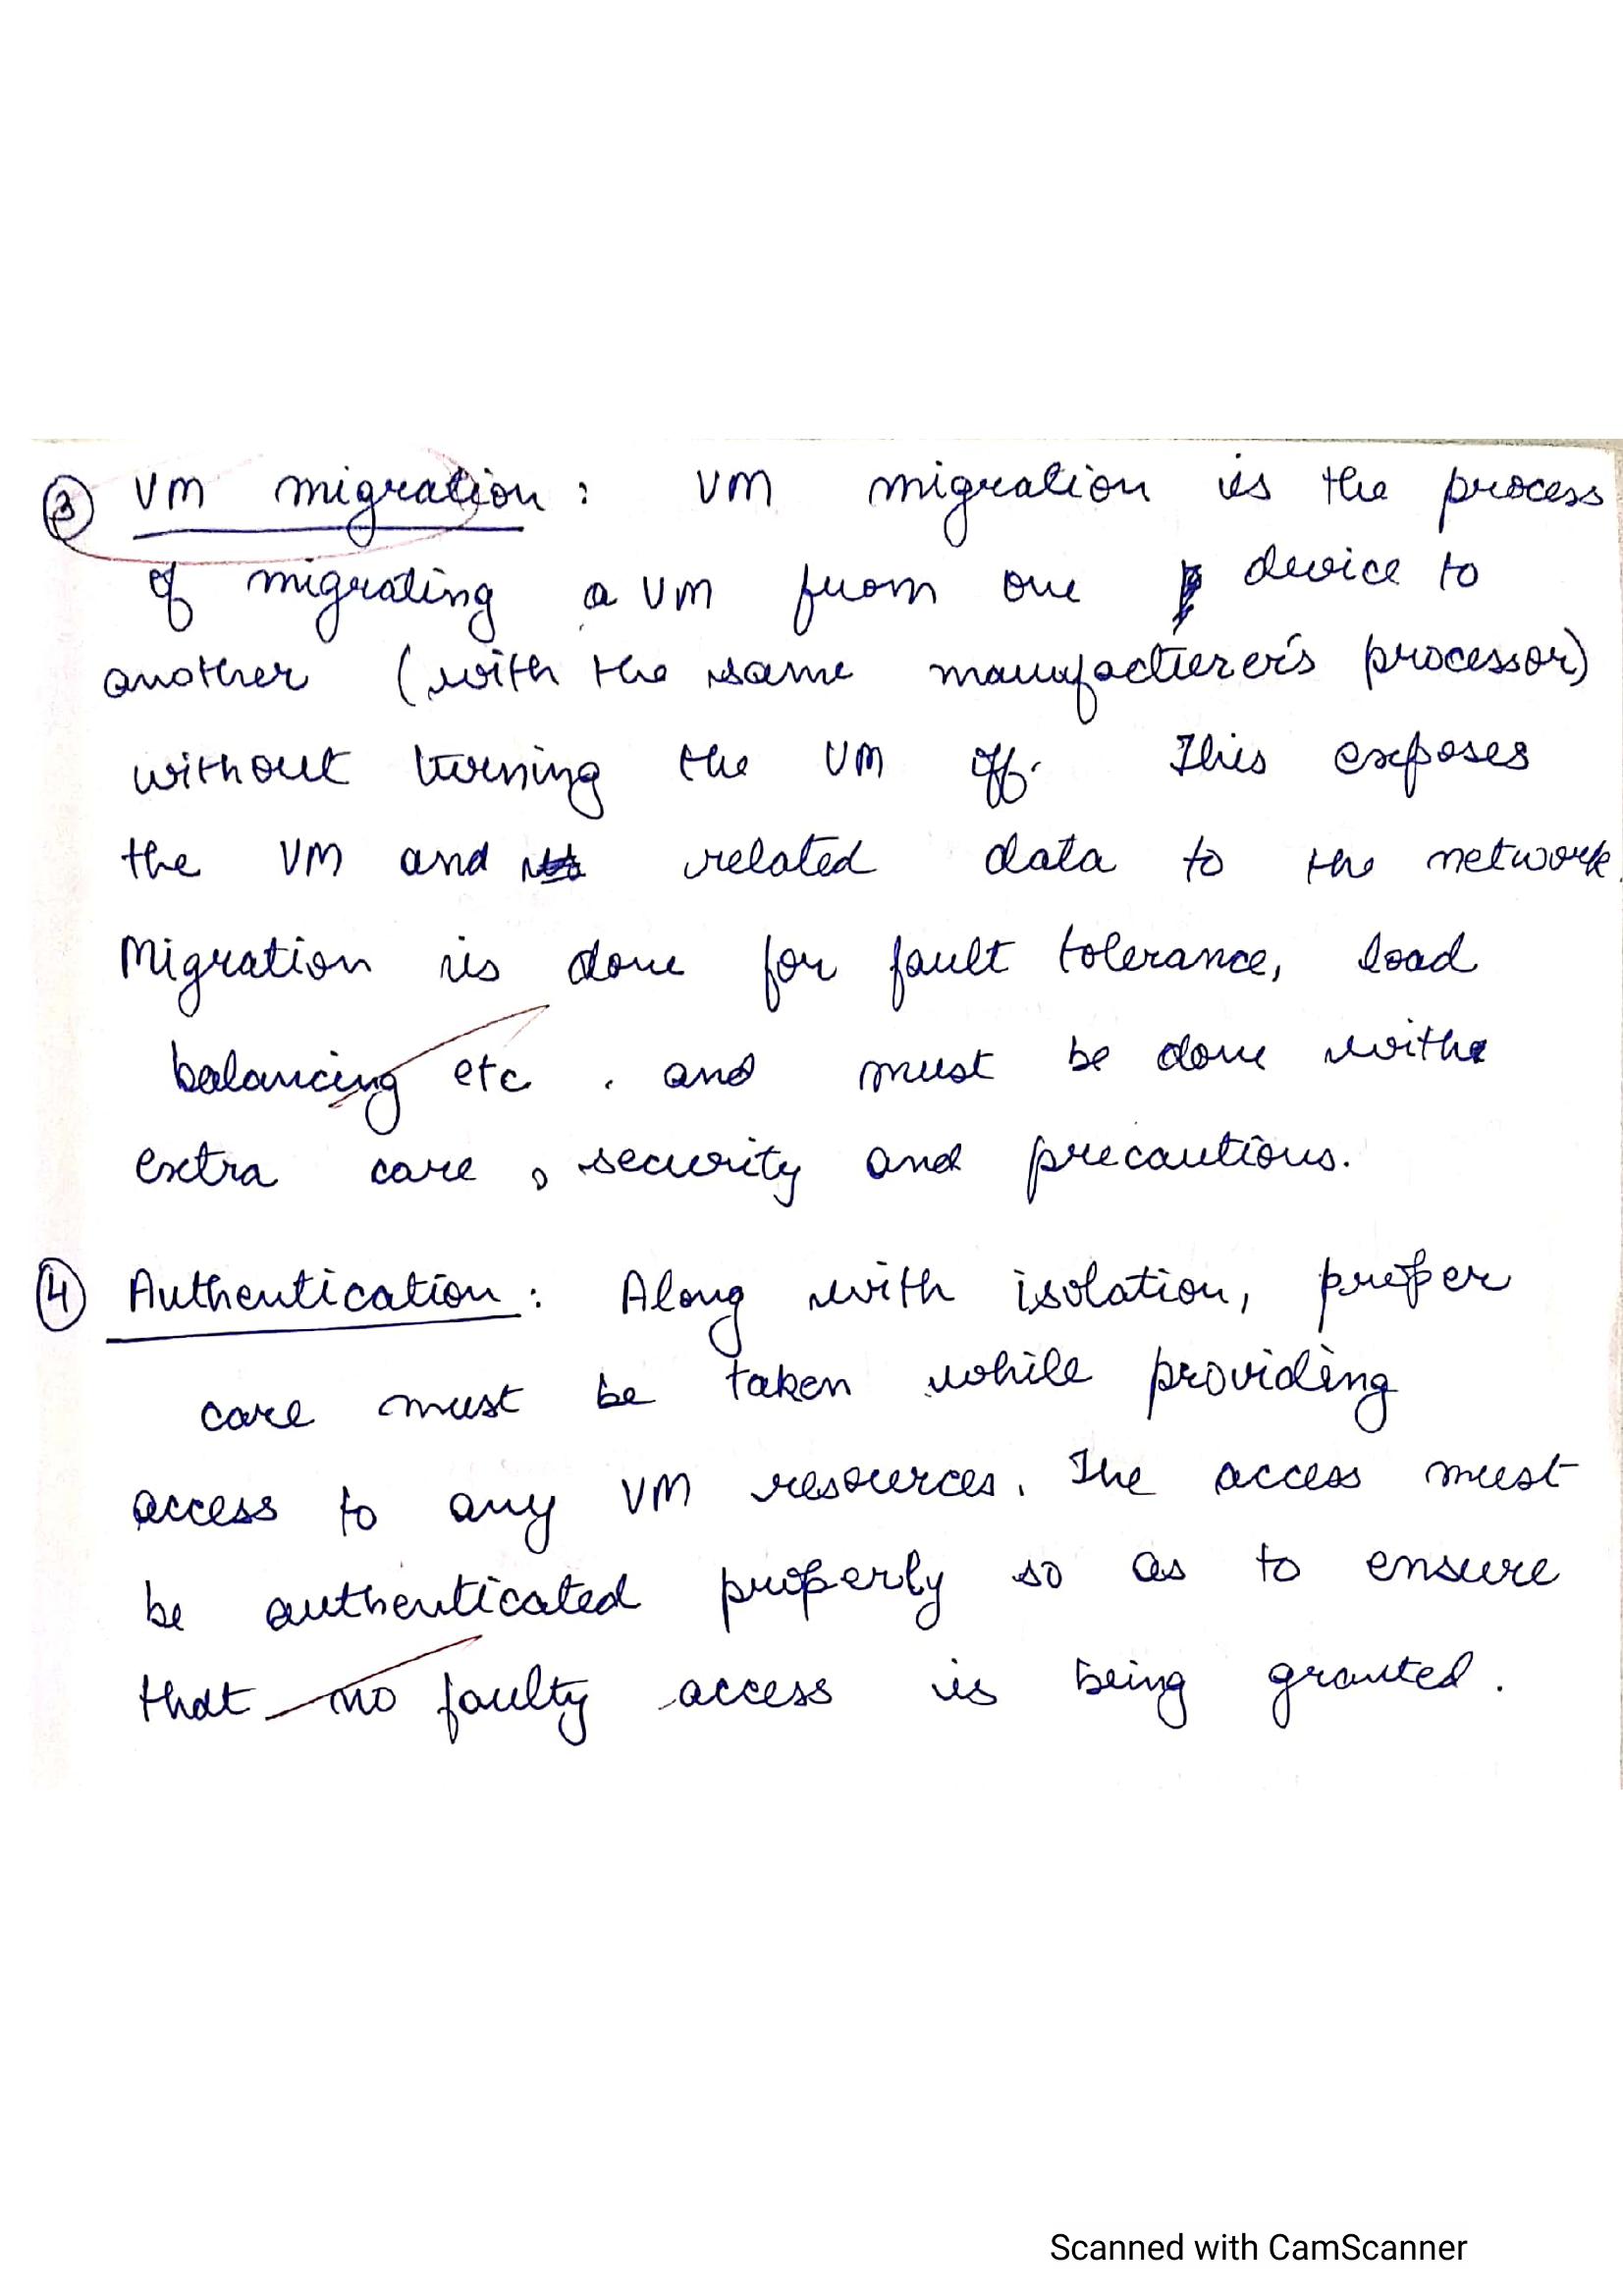 ③ VM migration : VM migration is the process
of migrating a VM from one device to
another (with the same manufacturer's processor)
without turning the VM off. This exposes
the VM and related data to the network.
Migration is done for fault tolerance, load
balancing etc . and must be done with
extra care , security and precautions.
④ Authentication : Along with isolation, proper
care must be taken while providing
access to any VM resources. The access must
be authenticated properly so as to ensure
that no faulty access is being granted.
Scanned with CamScanner